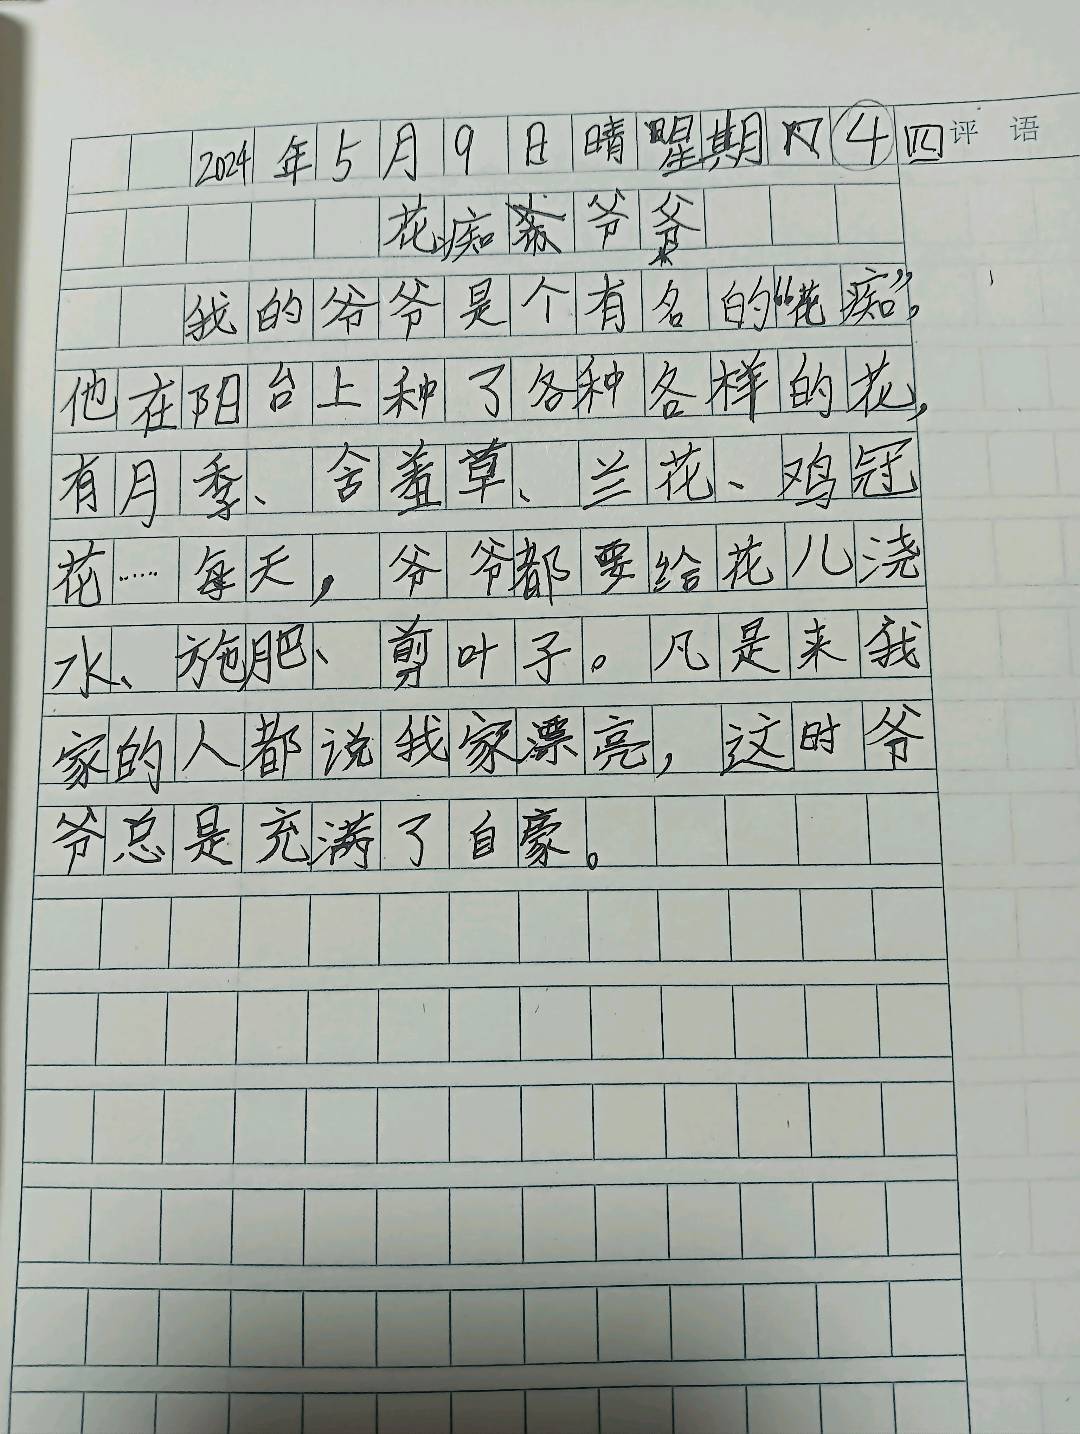 2024年5月9日晴星期④四评语
花痴爷爷
我的爷爷是个有名的“花痴”,
他在阳台上种了各种各样的花,
有月季、含羞草、兰花、鸡冠
花……每天,爷爷都要给花儿浇
水、施肥、剪叶子。凡是来我
家的人都说我家漂亮,这时爷
爷总是充满了自豪。